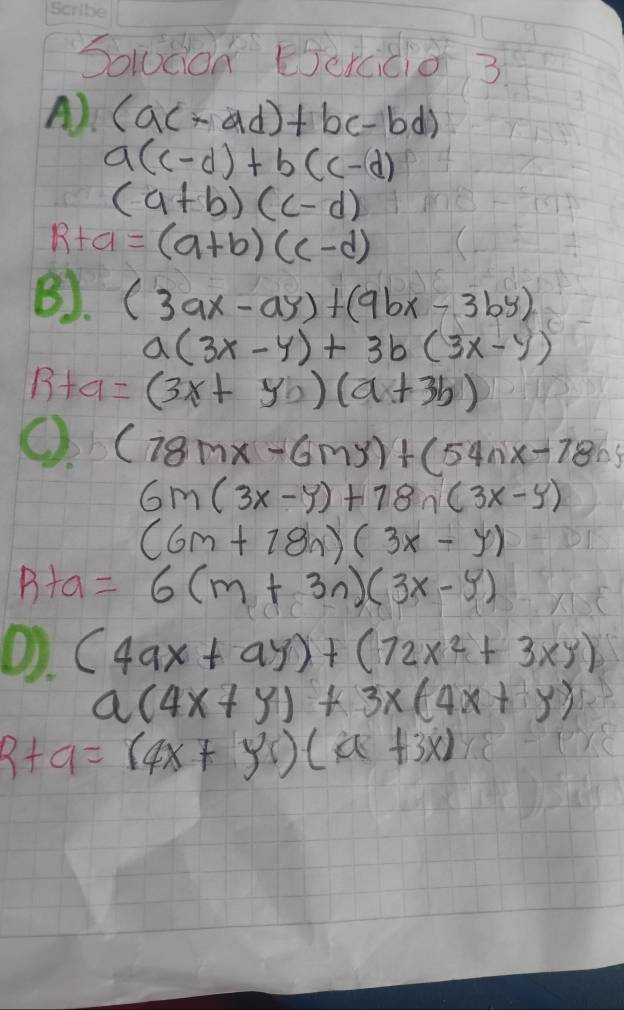 Scribe
Solución Ejercicio 3
A). (ac - ad) + bc - bd)
a(c-d) + b(c-d)
(a+b) (c-d)
R+a = (a+b) (c-d)
B). (3ax - ay) + (9bx - 3by)
a(3x - y) + 3b (3x - y)
R+a = (3x + y) (a + 3b)
C). (18mx - 6my) + (54nx - 18ny
6m (3x - y) + 18n (3x - y)
(6m + 18n) (3x - y)
R+a = 6 (m + 3n)(3x - y)
D). (4ax + ay) + (12x² + 3xy)
a(4x + y) + 3x(4x + y)
R+a = (4x + y) (a + 3x)